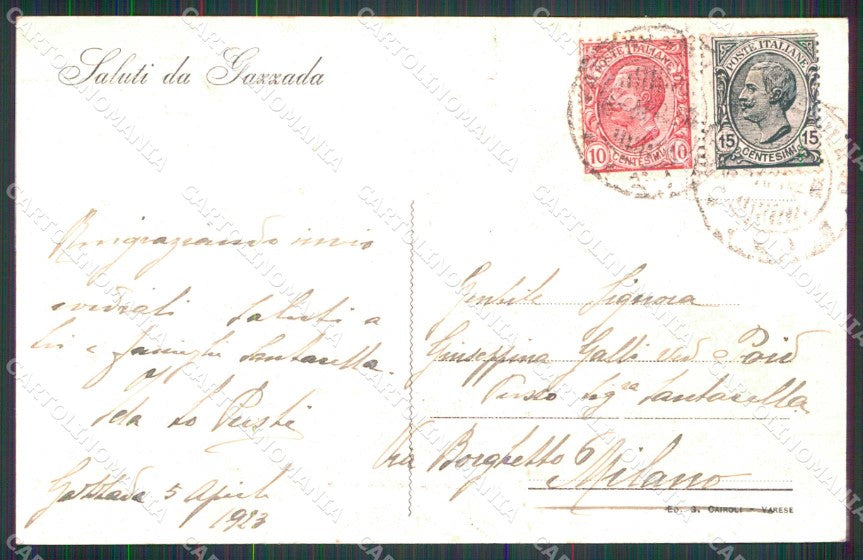 Saluti da Gazzada
POSTE ITALIANE
10 CENTESIMI 10
POSTE ITALIANE
15 CENTESIMI 15
Ringraziando invio
cordiali saluti a
Lei e famiglia Santarella
Gazzada 5 Aprile
1923
Gentile Signora
Giuseppina Galli
Presso Sig.ra Santarella
Via Borghetto 6
Milano
Ed. G. Cairoli - Varese
CARTOLINOMANIA